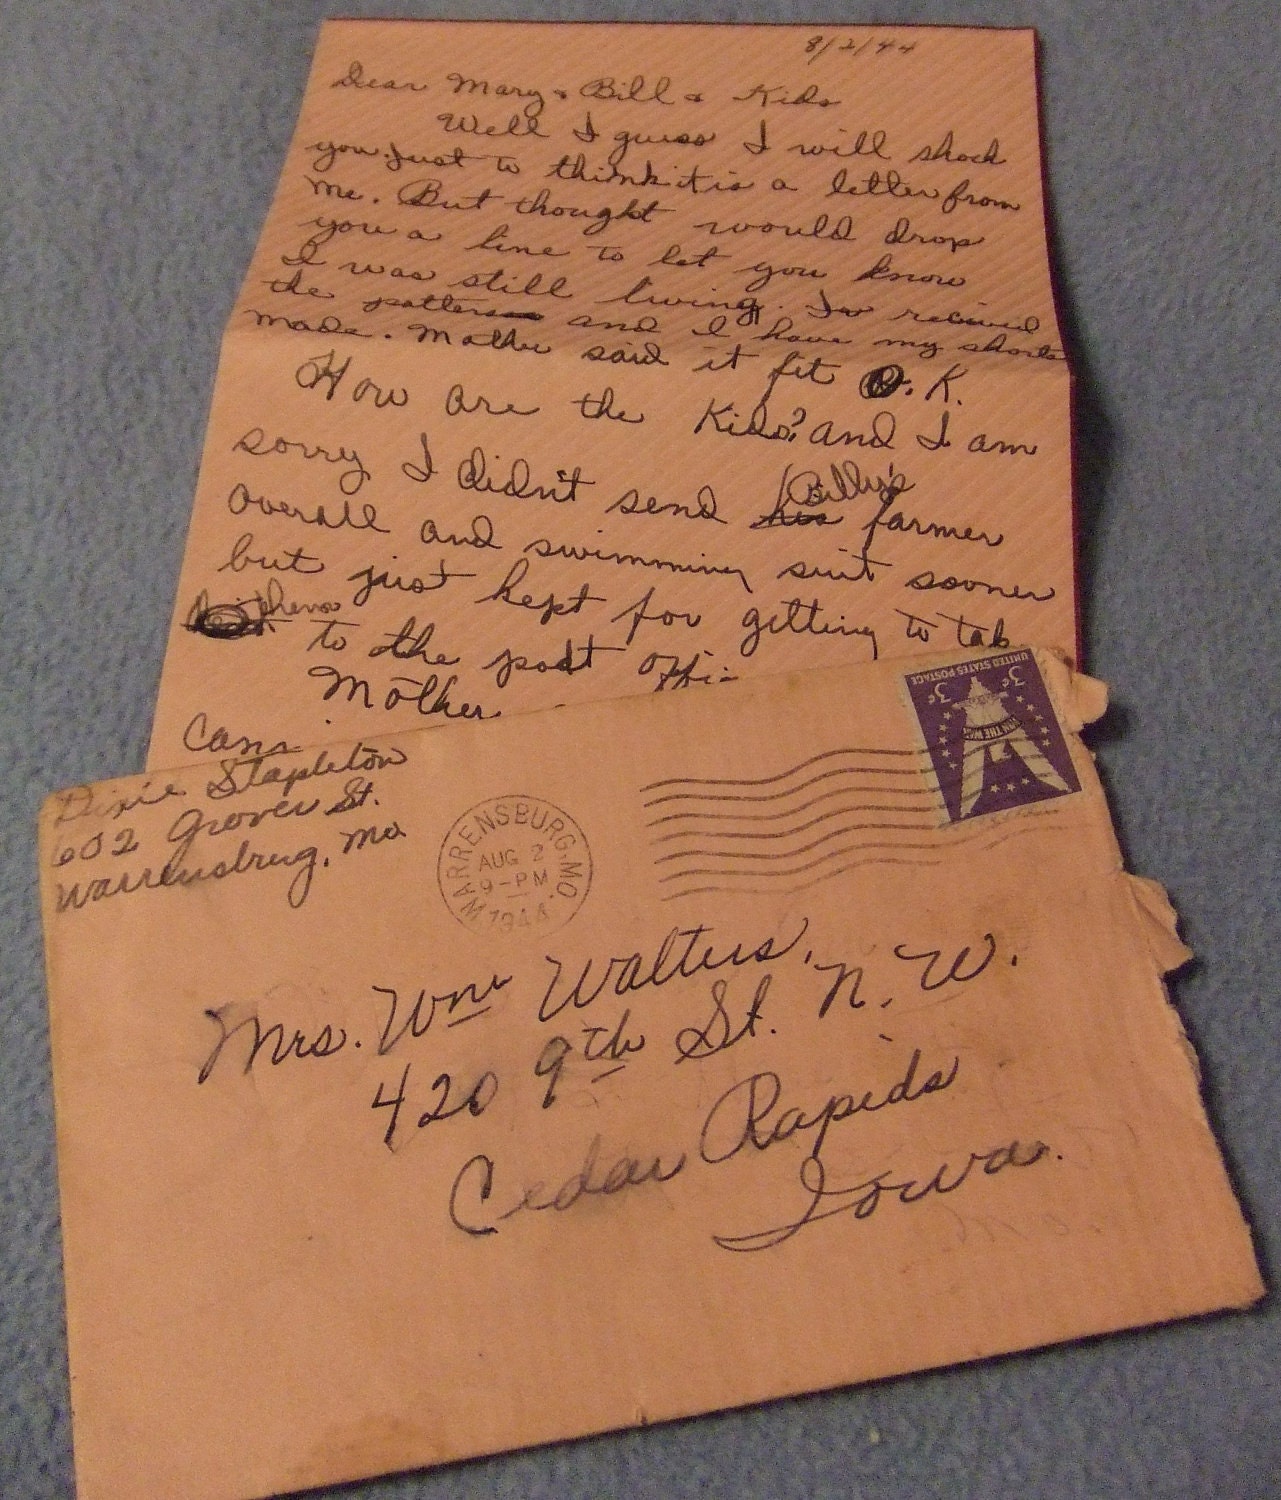 8/2/44
Dear Mary & Bill & Kids
Well I guess I will shock
you. Just to think it is a letter from
me. But thought would drop
you a line to let you know
I was still living. received
the pattern and I have my shorts
made. Mother said it fit O.K.
How are the Kids? and I am
sorry I didn't send Billy's farmer
overall and swimming suit sooner
but just kept for getting to
them to the post
Mother
Dixie Stapleton
602 Grover St.
Warrensbrug, Mo
WARRENSBURG, MO.
AUG 2
9-PM
1944
UNITED STATES POSTAGE
3¢ 3¢
WIN THE WAR
Mrs. Wm Walters,
420 9th St. N.W.
Cedar Rapids
Iowa.